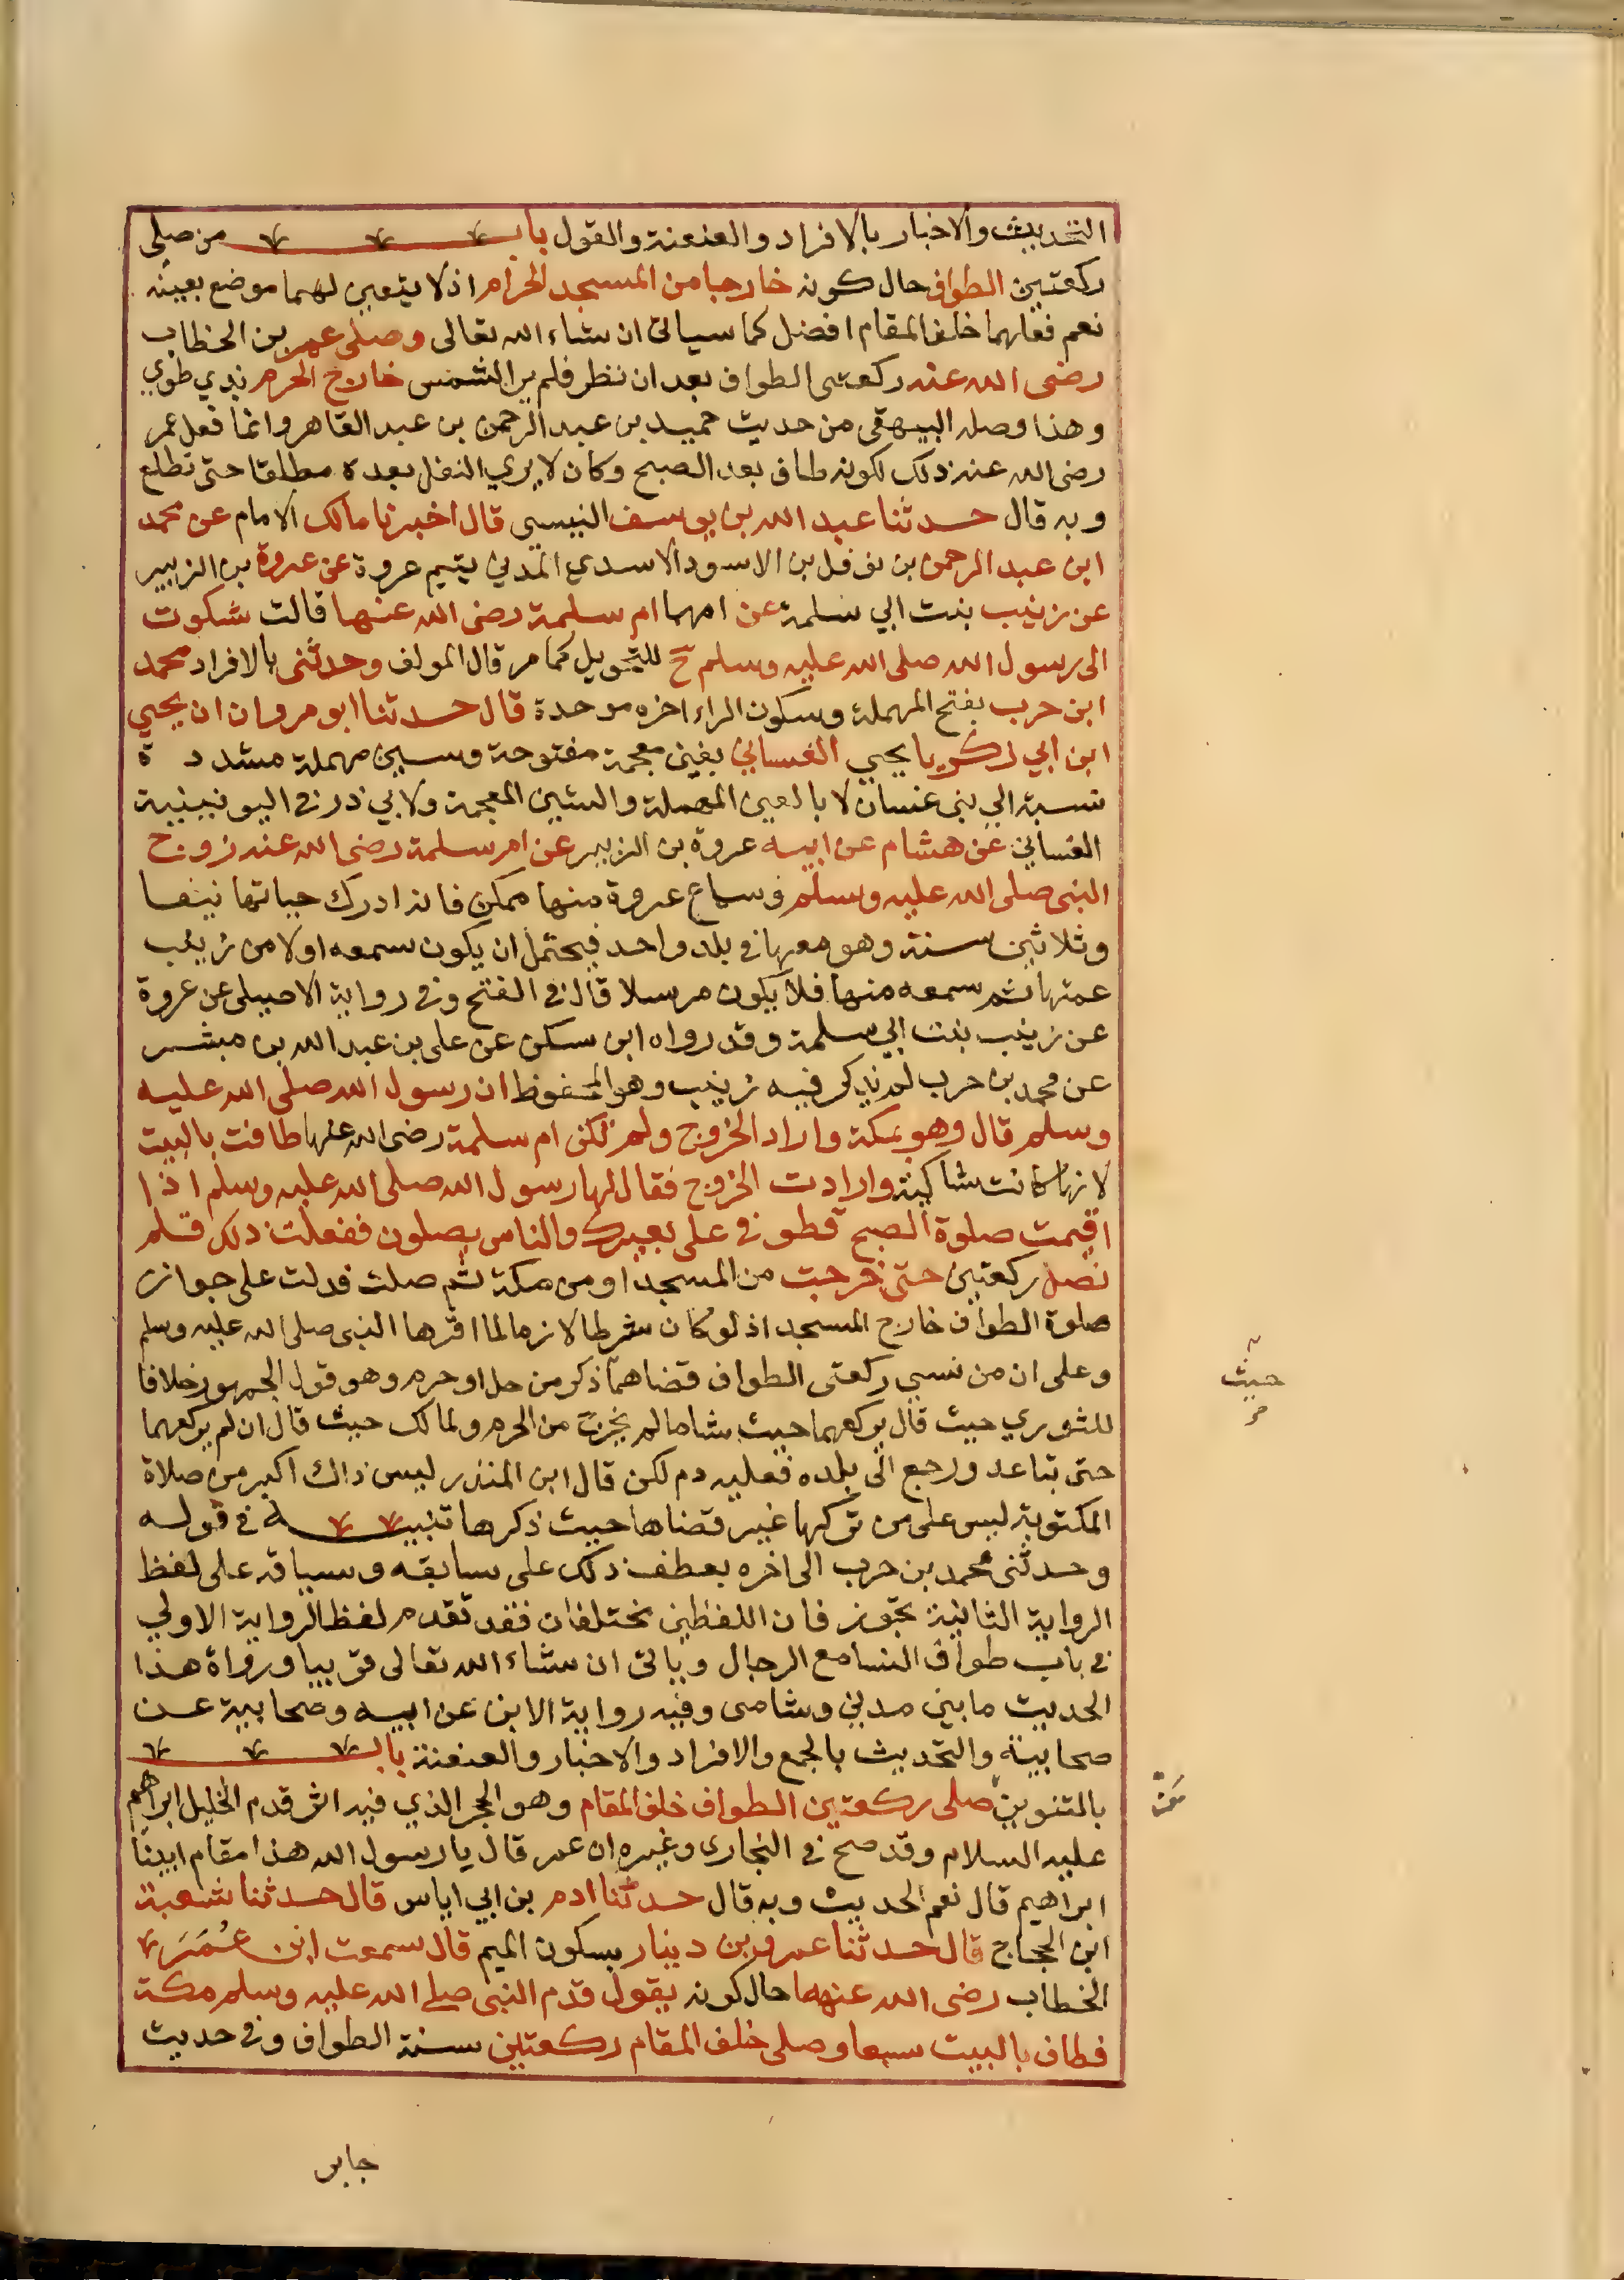 التحديث والاخبار بالافراد والعنعنة والقول باب من صلى
ركعتين الطواف حال كونه خارجا من المسجد الحرام اذ لا يتعين لهما موضع بعينه
نعم فعلهما خلف المقام افضل كما سياتى ان شاء الله تعالى وصلى عمر بن الخطاب
رضى الله عنه ركعتى الطواف بعد ان نظر فلم ير الشمس خارج الحرم بذي طوي
وهذا وصله البيهقى من حديث حميد بن عبد الرحمن بن عبد القاهر وانما فعل عمر
رضى الله عنه ذلك لكونه طاف بعد الصبح وكان لا يري النفل بعده مطلقا حتى تطلع
وبه قال حدثنا عبد الله بن يوسف التنيسى قال اخبرنا مالك الامام عن محمد
ابن عبد الرحمن بن نوفل بن الاسود الاسدي المدني يتيم عروة عن عروة بن الزبير
عن زينب بنت ابي سلمة عن امها ام سلمة رضى الله عنها قالت شكوت
الى رسول الله صلى الله عليه وسلم ح للتحويل كما مر قال المولف وحدثنى بالافراد محمد
ابن حرب بفتح المهملة وسكون الراء اخره موحدة قال حدثنا ابو مروان ان يحيي
ابن ابي زكريا يحيي الغساني بغين معجمة مفتوحة وسين مهملة مشددة
نسبة الي بنى غسان لا بالعين المهملة والشين المعجمة ولابي ذر في اليونينية
الغساني عن هشام عن ابيه عروة بن الزبير عن ام سلمة رضى الله عنه زوج
النبى صلى الله عليه وسلم وسماع عروة منها ممكن فانه ادرك حياتها نيفا
وثلاثين سنة وهو معها في بلد واحد فيحتمل ان يكون سمعه اولا من زينب
عمتها ثم سمعه منها فلا يكون مرسلا قال في الفتح وفي رواية الاصيلى عن عروة
عن زينب بنت ابي سلمة وقد رواه ابن سكن عن على بن عبد الله بن مبشر
عن محمد بن حرب لم يذكر فيه زينب وهو المحفوظ ان رسول الله صلى الله عليه
وسلم قال وهو بمكة واراد الخروج ولم تكن ام سلمة رضى الله عنها طافت بالبيت
لانها كانت شاكية وارادت الخروج فقال لها رسول الله صلى الله عليه وسلم اذا
اقيمت صلوة الصبح فطوفي على بعيرك والناس يصلون ففعلت ذلك فلم
تصل ركعتين حتى خرجت من المسجد او من مكة ثم صلت فدلت على جواز
صلوة الطواف خارج المسجد اذ لو كان شرطا لازما لما اقرها النبى صلى الله عليه وسلم
وعلى ان من نسي ركعتى الطواف قضاهما ذكر من حل او حرم وهو قول الجمهور خلافا
للثوري حيث قال يركعهما حيث شاما لم يخرج من الحرم ولمالك حيث قال ان لم يركعهما
حتى تباعد ورجع الى بلده فعليه دم لكن قال ابن المنذر ليس ذلك اكبر من صلاة
المكتوبة ليس على من تركها غير قضاها حيث ذكرها تنبيه في قوله
وحدثنى محمد بن حرب الى اخره بعطف ذلك على سابقه وسياقه على لفظ
الرواية الثانية تجوز فان اللفظين مختلفان فقد تقدم لفظ الرواية الاولي
في باب طواف النسا مع الرجال وياتى ان شاء الله تعالى قريبا ورواة هذا
الحديث ما بين مدني وشامى وفيه رواية الابن عن ابيه وصحابية عن
صحابية والتحديث بالجمع والافراد والاخبار والعنعنة باب
بالتنوين صلى ركعتين الطواف خلف المقام وهو الحجر الذي فيه اثر قدم الخليل ابراهيم
عليه السلام وقد صح في البخارى وغيره ان عمر قال يا رسول الله هذا مقام ابينا
ابراهيم قال نعم الحديث وبه قال حدثنا ادم بن ابي اياس قال حدثنا شعبة
ابن الحجاج قال حدثنا عمرو بن دينار بسكون الميم قال سمعت ابن عُمَرَ
الخطاب رضى الله عنهما حال كونه يقول قدم النبى صلى الله عليه وسلم مكة
فطاف بالبيت سبعا وصلى خلف المقام ركعتين سنة الطواف وفي حديث
حيث
مَن
جابر